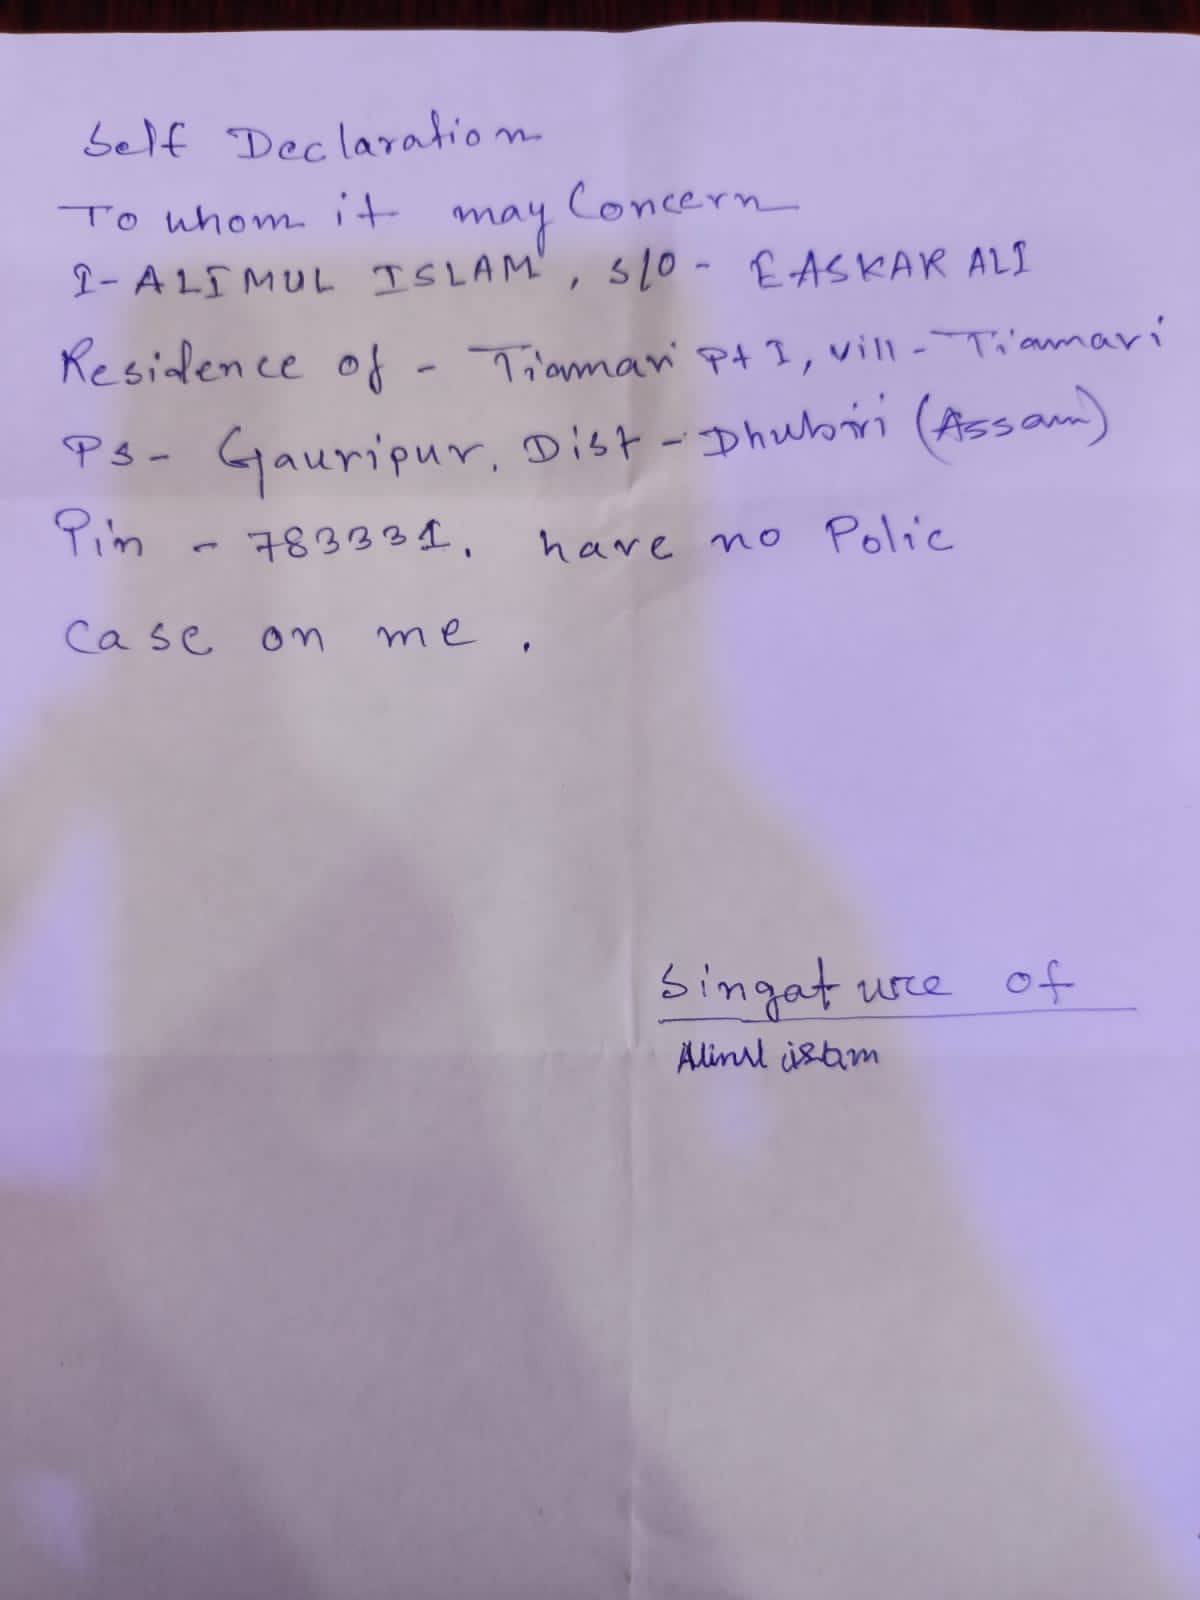 Self Declaration
To whom it may Concern
I- ALIMUL ISLAM, S/O - EASKAR ALI
Residence of - Tiamari Pt I, vill - Tiamari
PS - Gauripur, Dist - Dhubri (Assam)
Pin - 783331. have no Polic
Case on me.
Singature of
Alimul islam